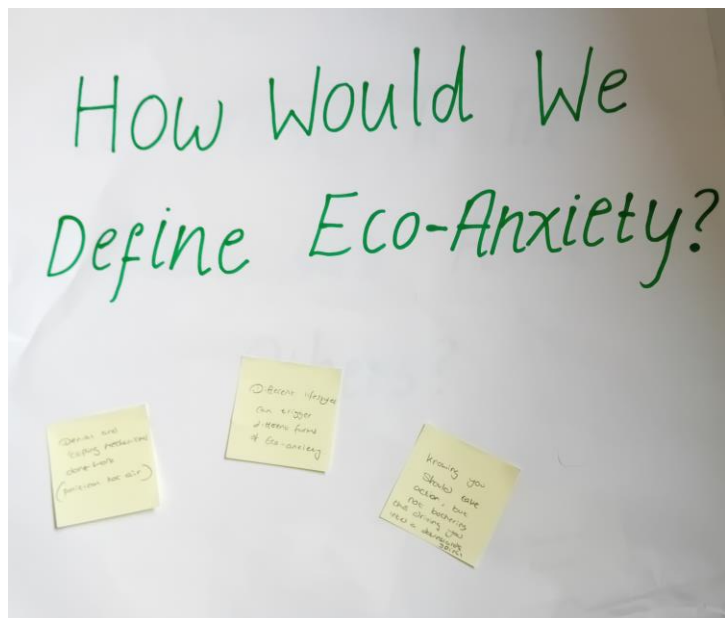 How Would We
Define Eco-Anxiety?
Denial and
coping mechanisms
don't work
(political hot air)
Different lifestyles
can trigger
different forms
of Eco-anxiety
Knowing you
Should take
action, but
not bothering
and driving you
into a downwards
spiral